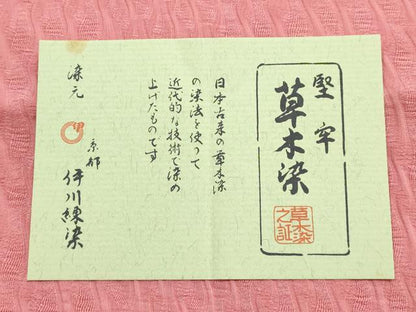 堅牢
草木染
草木染
之証
日本古来の草木染
の染法を使って
近代的な技術で染め
上げたものです
染元
伊
京都
伊川練染